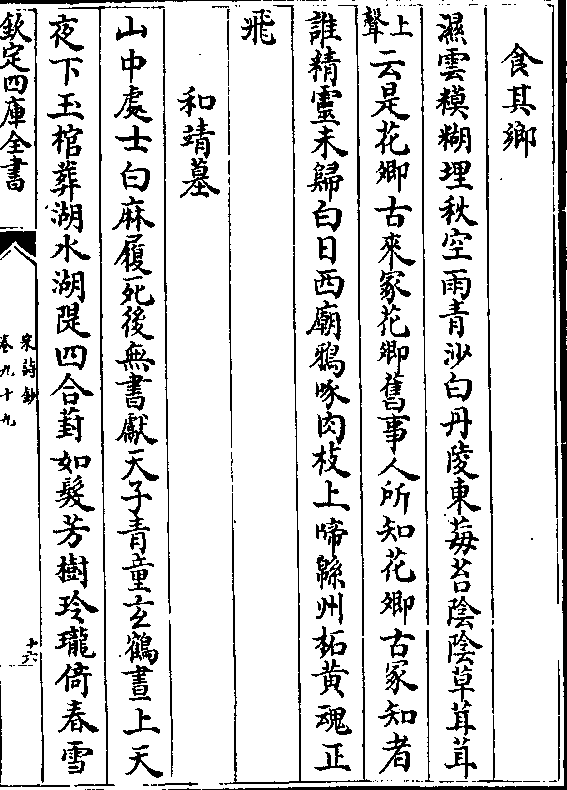 食其鄉
濕雲糢糊埋秋空雨青沙白丹陵東莓苔陰陰草茸茸
上聲云是花卿古來冢花卿舊事人所知花卿古冢知者
誰精靈未歸白日西廟鴉啄肉枝上啼緜州柘黃魂正
飛
和靖墓
山中處士白麻履死後無書獻天子青童玄鶴晝上天
夜下玉棺葬湖水湖隄四合葑如髮芳樹玲瓏倚春雪
欽定四庫全書
宋詩鈔
卷九十九
十六